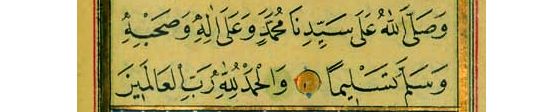 وَصَلَّى اللّٰهُ عَلَى سَيِّدِنَا مُحَمَّدٍ وَعَلَى اٰلِهٖ وَصَحْبِهٖ
وَسَلَّمَ تَسْلِيمًا وَالْحَمْدُ لِلّٰهِ رَبِّ الْعَالَمِينَ